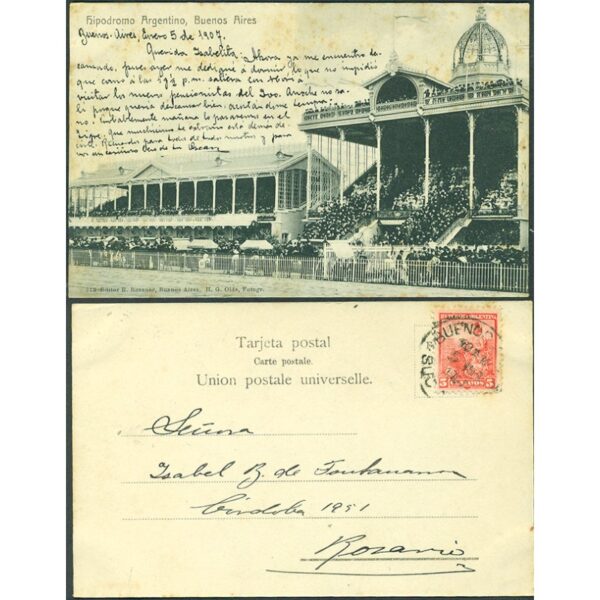 Hipodromo Argentino, Buenos Aires
Buenos-Aires, Enero 5 de 1907.
Querida Isabelita: Ahora ya me encuentro de
cansado, pues ayer me dediqué a dormir, lo que no impidió
que como a las 9½ p.m. saliera con
visitar los nuevos pensionistas del Zoo. Anoche no sa-
lí porque quería descansar bien, acostandome tempra-
no. Probablemente mañana lo pasaremos en el
Tigre. Que muchisimo te extraño esto demás de-
cirte. Recuerdos para todos de todos nosotros y para
tí un cariñoso beso de tu Oscar
Editor R. Rosauer, Buenos Aires. H. G. Olds, Fotogr.
Tarjeta postal
Carte postale.
Union postale universelle.
REPUBLICA ARGENTINA
BUENOS
SUC
5 CENTAVOS 5
Señora
Isabel B. de Fontanarrosa
Córdoba 1951
Rosario